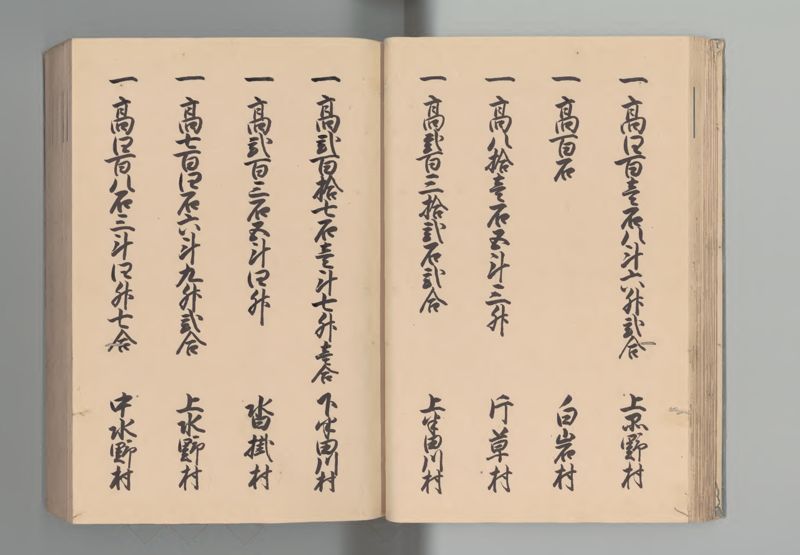 一 高四百壱石八斗六升弐合 上品野村
一 高百石 白岩村
一 高八拾壱石五斗三升 片草村
一 高弐百三拾弐石弐合 上半田川村
一 高弐百拾七石壱斗七升壱合 下半田川村
一 高弐百三石五斗四升 沓掛村
一 高七百四石六斗九升弐合 上水野村
一 高四百八石三斗四升七合 中水野村